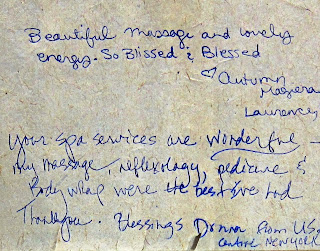 Beautiful massage and lovely
energy. So Blissed & Blessed
♡ Autumn
Laurence,
Your spa services are wonderful —
my massage, reflexology, pedicure &
Body wrap were the best I've had
Thankyou. Blessings Donna from US.
New York